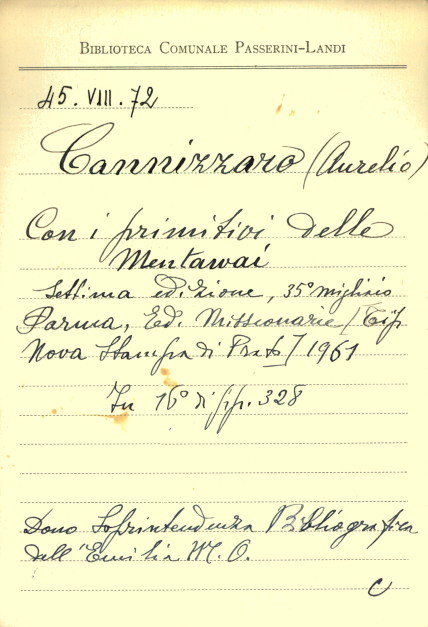 BIBLIOTECA COMUNALE PASSERINI-LANDI
45. VIII. 72
Cannizzaro (Aurelio)
Con i primitivi delle
Mentawai
Settima edizione, 35º migliaio
Parma, Ed. Missionarie [Tip.
Nova Stampa di Prato] 1961
In 16º di pp. 328
Dono Soprintendenza Bibliografica
dell'Emilia N. O.
C